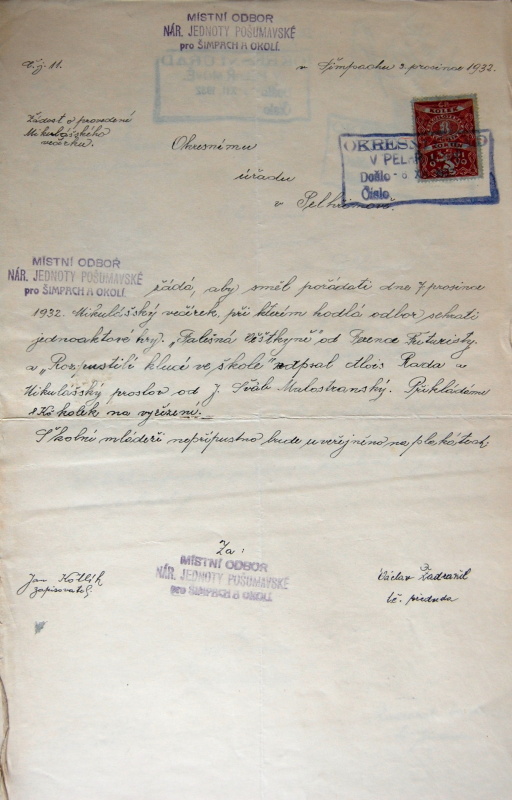 MÍSTNÍ ODBOR
NÁR. JEDNOTY POŠUMAVSKÉ
pro ŠIMPACH A OKOLÍ.
Č. j. 11.
v Šimpachu 2. prosince 1932.
Žádost o provedení
Mikulášského
večírku.
Okresnímu
úřadu
v Pelhřimově.
OKRESN
V PEL
Došlo
Číslo
KOLEK
5
MÍSTNÍ ODBOR
NÁR. JEDNOTY POŠUMAVSKÉ
pro ŠIMPACH A OKOLÍ.
žádá, aby směl pořádati dne 7 prosince
1932. Mikulášský večírek, při kterém hodlá odbor sehrati
jednoaktové hry. "Falešná Věštkyně" od Ference Futuristy
a "Rozpustilí kluci ve škole" napsal Alois Rada a
Mikulášský proslov od J. Šváb Malostranský. Přikládáme
8 Kč kolek na vyřízení.
Školní mládeži nepřípustno bude uveřejněno na plakátech
Za:
MÍSTNÍ ODBOR
NÁR. JEDNOTY POŠUMAVSKÉ
pro ŠIMPACH A OKOLÍ.
Jan Kotlík
zapisovatel.
Václav Zadražil
t.č. předseda